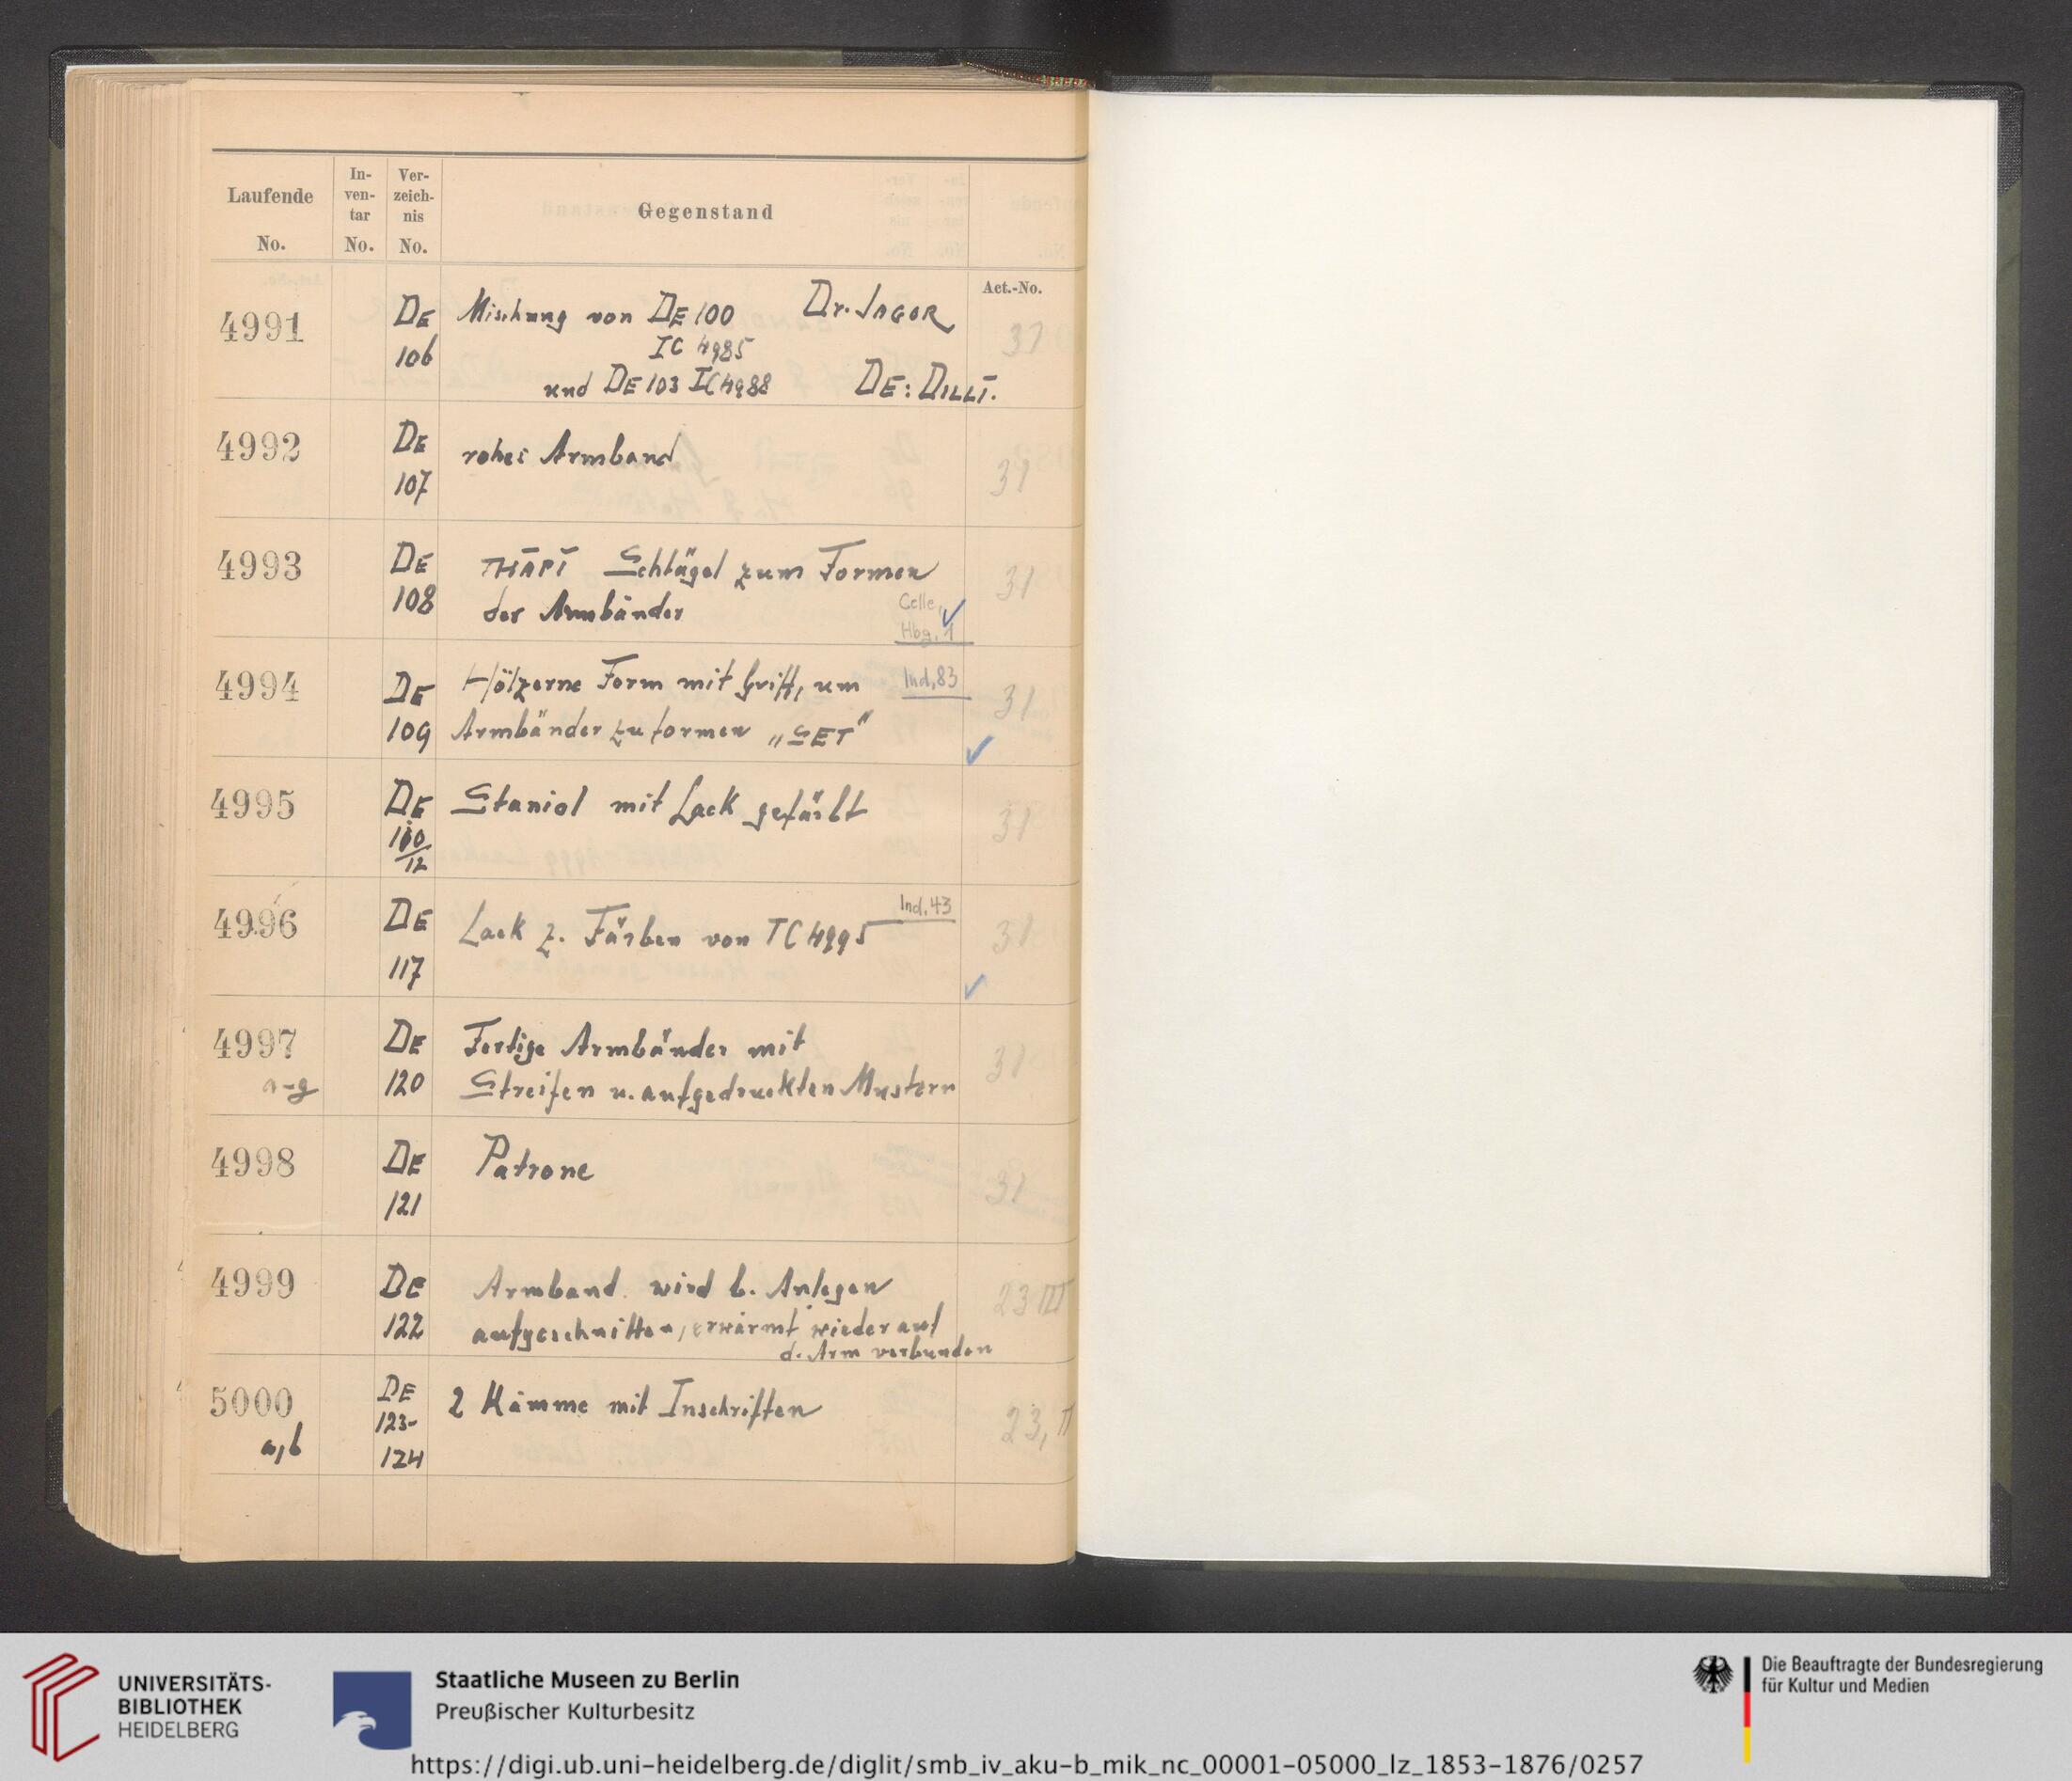 Laufende No.
In-ven-tar No.
Ver-zeich-nis No.
Gegenstand
Act.-No.
4991 DE 106 Mischung von DE 100 Dr. JAGOR
IC 4985
und DE 103 IC 4988 DE: DILLI.
4992 DE 107 rohes Armband 31
4993 DE 108 THĀPĪ Schlägel zum Formen 31
der Armbänder
Celle,
Hbg. 1
4994 DE 109 Hölzerne Form mit Griff, um Ind, 83 31
Armbänder zu formen „SET"
4995 DE 110/12 Staniol mit Lack gefärbt 31
4996 DE 117 Lack z. Färben von IC 4995 Ind. 43 31
4997 a-g DE 120 Fertige Armbänder mit 31
Streifen u. aufgedruckten Mustern
4998 DE 121 Patrone 31
4999 DE 122 Armband wird b. Anlegen 23 III
aufgeschnitten, erwärmt wieder auf
d. Arm verbunden
5000 a,b DE 123-124 2 Kämme mit Inschriften 23,
UNIVERSITÄTS-
BIBLIOTHEK
HEIDELBERG
Staatliche Museen zu Berlin
Preußischer Kulturbesitz
Die Beauftragte der Bundesregierung
für Kultur und Medien
https://digi.ub.uni-heidelberg.de/diglit/smb_iv_aku-b_mik_nc_00001-05000_lz_1853-1876/0257